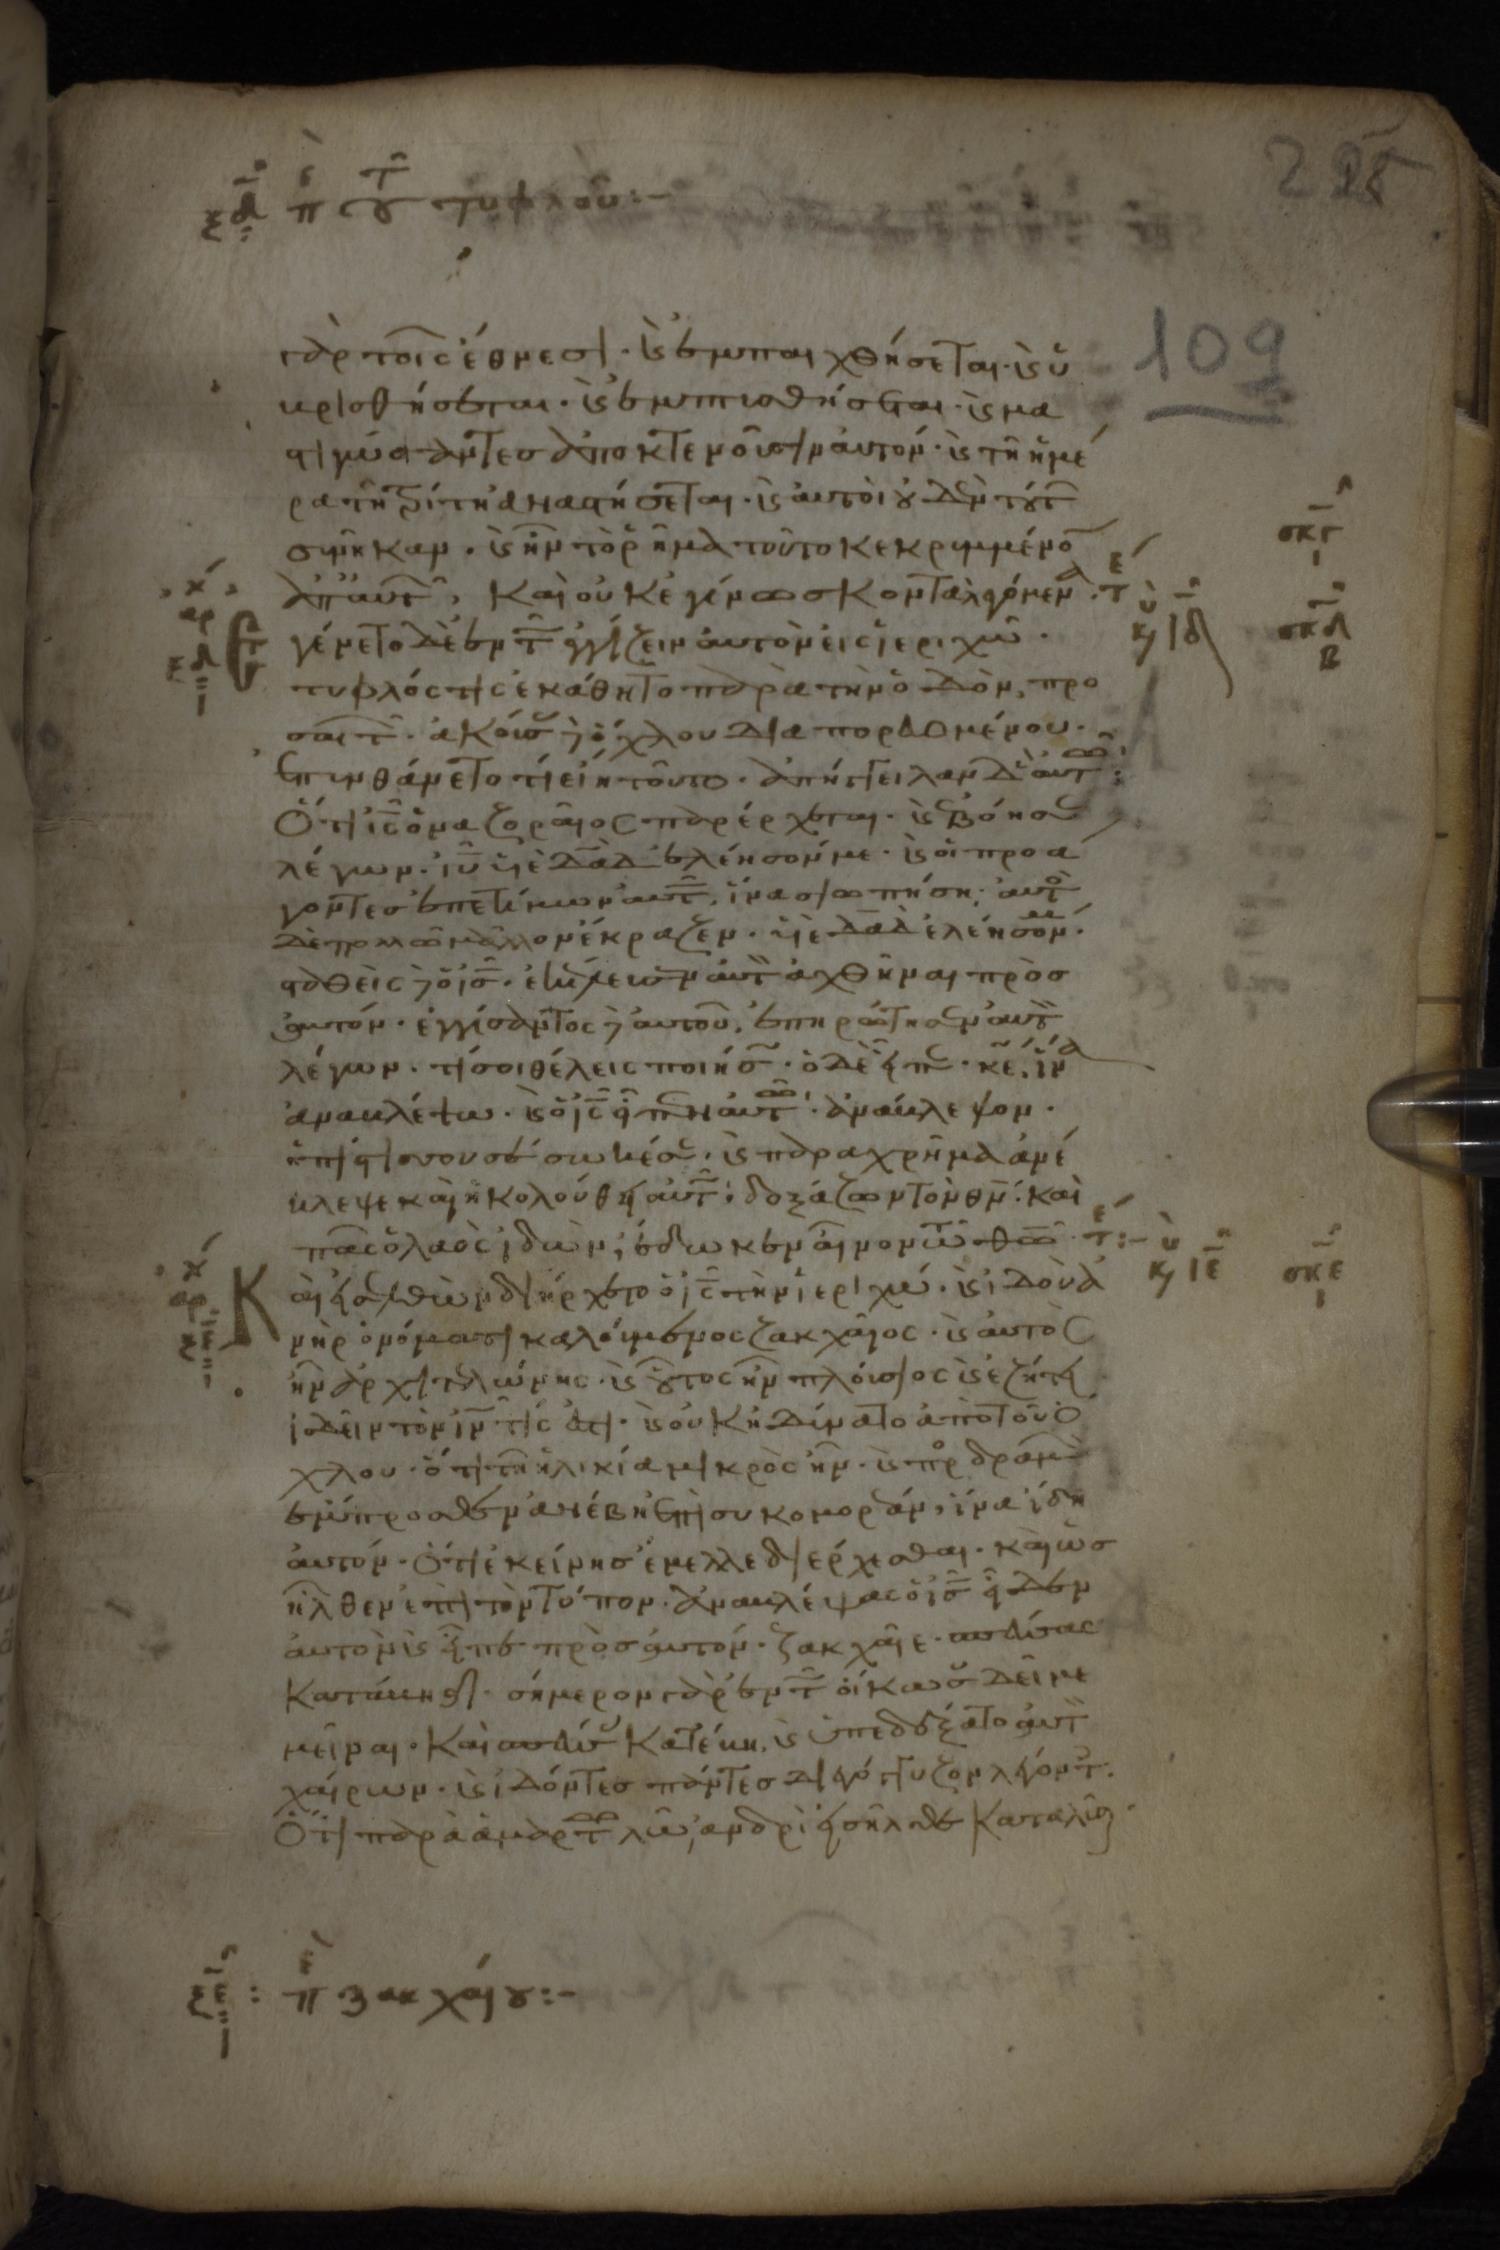 ξδ π τοῦ τυφλοῦ:-
109
γὰρ τοῖς ἔθνεσι · καὶ ἐμπαιχθήσεται · καὶ ὑ
βρισθήσεται · καὶ ἐμπτυσθήσεται · καὶ μα
στιγώσαντες ἀποκτενοῦσιν αὐτόν · καὶ τῆ ἡμέ
ρα τῆ τρίτη ἀναστήσεται · καὶ αὐτοὶ οὐδὲν τούτ
συνῆκαν · καὶ ἦν τὸ ῥῆμα τοῦτο κεκρυμμένο
ἀπ αὐτ, καὶ οὐκ ἐγίνωσκον τὰ λεγόμενα · τε
σκγ
σκδ
β
γένετο δὲ ἐν τ ἐγγίζειν αὐτὸν εἰς ἱεριχὼ ·
κυ ιδ
τυφλός τις ἐκάθητο παρὰ τὴν ὁδὸν, προ
σαιτ · ἀκούσ δὲ ὄχλου διαπορευομένου ·
ἐπυνθάνετο τί εἴη τοῦτο · ἀπήγγειλαν δὲ αὐτῶ:
Ὅτι ις ὁ ναζοραῖος παρέρχεται · καὶ ἐβόησ
λέγων · ιυ υἱὲ δαδ ἐλέησόν με · καὶ οἱ προά
γοντες ἐπετίμων αὐτ, ἵνα σιωπήση · αὐτὸ
δὲ πολλῶ μᾶλλον ἔκραζεν · υἱὲ δαδ ἐλέησόν με ·
σταθεὶς δὲ ὁ ις · ἐκέλευσεν αὐτὸν ἀχθῆναι πρὸς
αὐτόν · ἐγγίσαντος δὲ αὐτοῦ, ἐπηρώτησεν αὐτὸν
λέγων · τί σοι θέλεις ποιήσ · ὁ δὲ εἶπ · κε, ἵνα
ἀναβλέψω · καὶ ὁ ις εἶπεν αὐτῶ · ἀνάβλεψον ·
ἡ πίστις σου σέσωκέ σε · καὶ παραχρῆμα ἀνέ
βλεψε καὶ ἠκολούθη αὐτ · δοξάζων τὸν θν · καὶ
πᾶς ὁ λαὸς ἰδὼν, ἔδωκεν αἶνον τῶ θω · τε:-
κυ ιε
σκε
Καὶ εἰσελθὼν διήρχετο ὁ ις τὴν ἱεριχώ · καὶ ἰδοὺ ἀ
νὴρ ὀνόματι καλούμενος ζακχαῖος · καὶ αὐτὸς
ἦν ἀρχιτελώνης · καὶ οὗτος ἦν πλούσιος καὶ ἐζήτει
ἰδεῖν τὸν ιν τίς ἐστι · καὶ οὐκ ἠδύνατο ἀπὸ τοῦ ὄ
χλου · ὅτι τῆ ἡλικία μικρὸς ἦν · καὶ προδραμὼ
ἔμπροσθεν ἀνέβη ἐπὶ συκομορέαν, ἵνα ἴδη
αὐτόν · Ὅτι ἐκείνης ἔμελλε διέρχεσθαι · καὶ ὡς
ἦλθεν ἐπὶ τὸν τόπον · ἀναβλέψας ὁ ις εἶδεν
αὐτὸν καὶ εἶπε πρὸς αὐτόν · ζακχαῖε · σπεύσας
Κατάβηθι · σήμερον γὰρ ἐν τ οἴκω σου δεῖ με
μεῖναι · Καὶ σπεύσ Κατέβη, καὶ ὑπεδέξατο αὐτὸν
χαίρων · καὶ ἰδόντες πάντες διεγόγγυζον λέγοντ ·
Ὅτι παρὰ ἁμαρτωλῶ ἀνδρὶ εἰσῆλθε Καταλῦσαι
ξε: π ζακχαίου:-